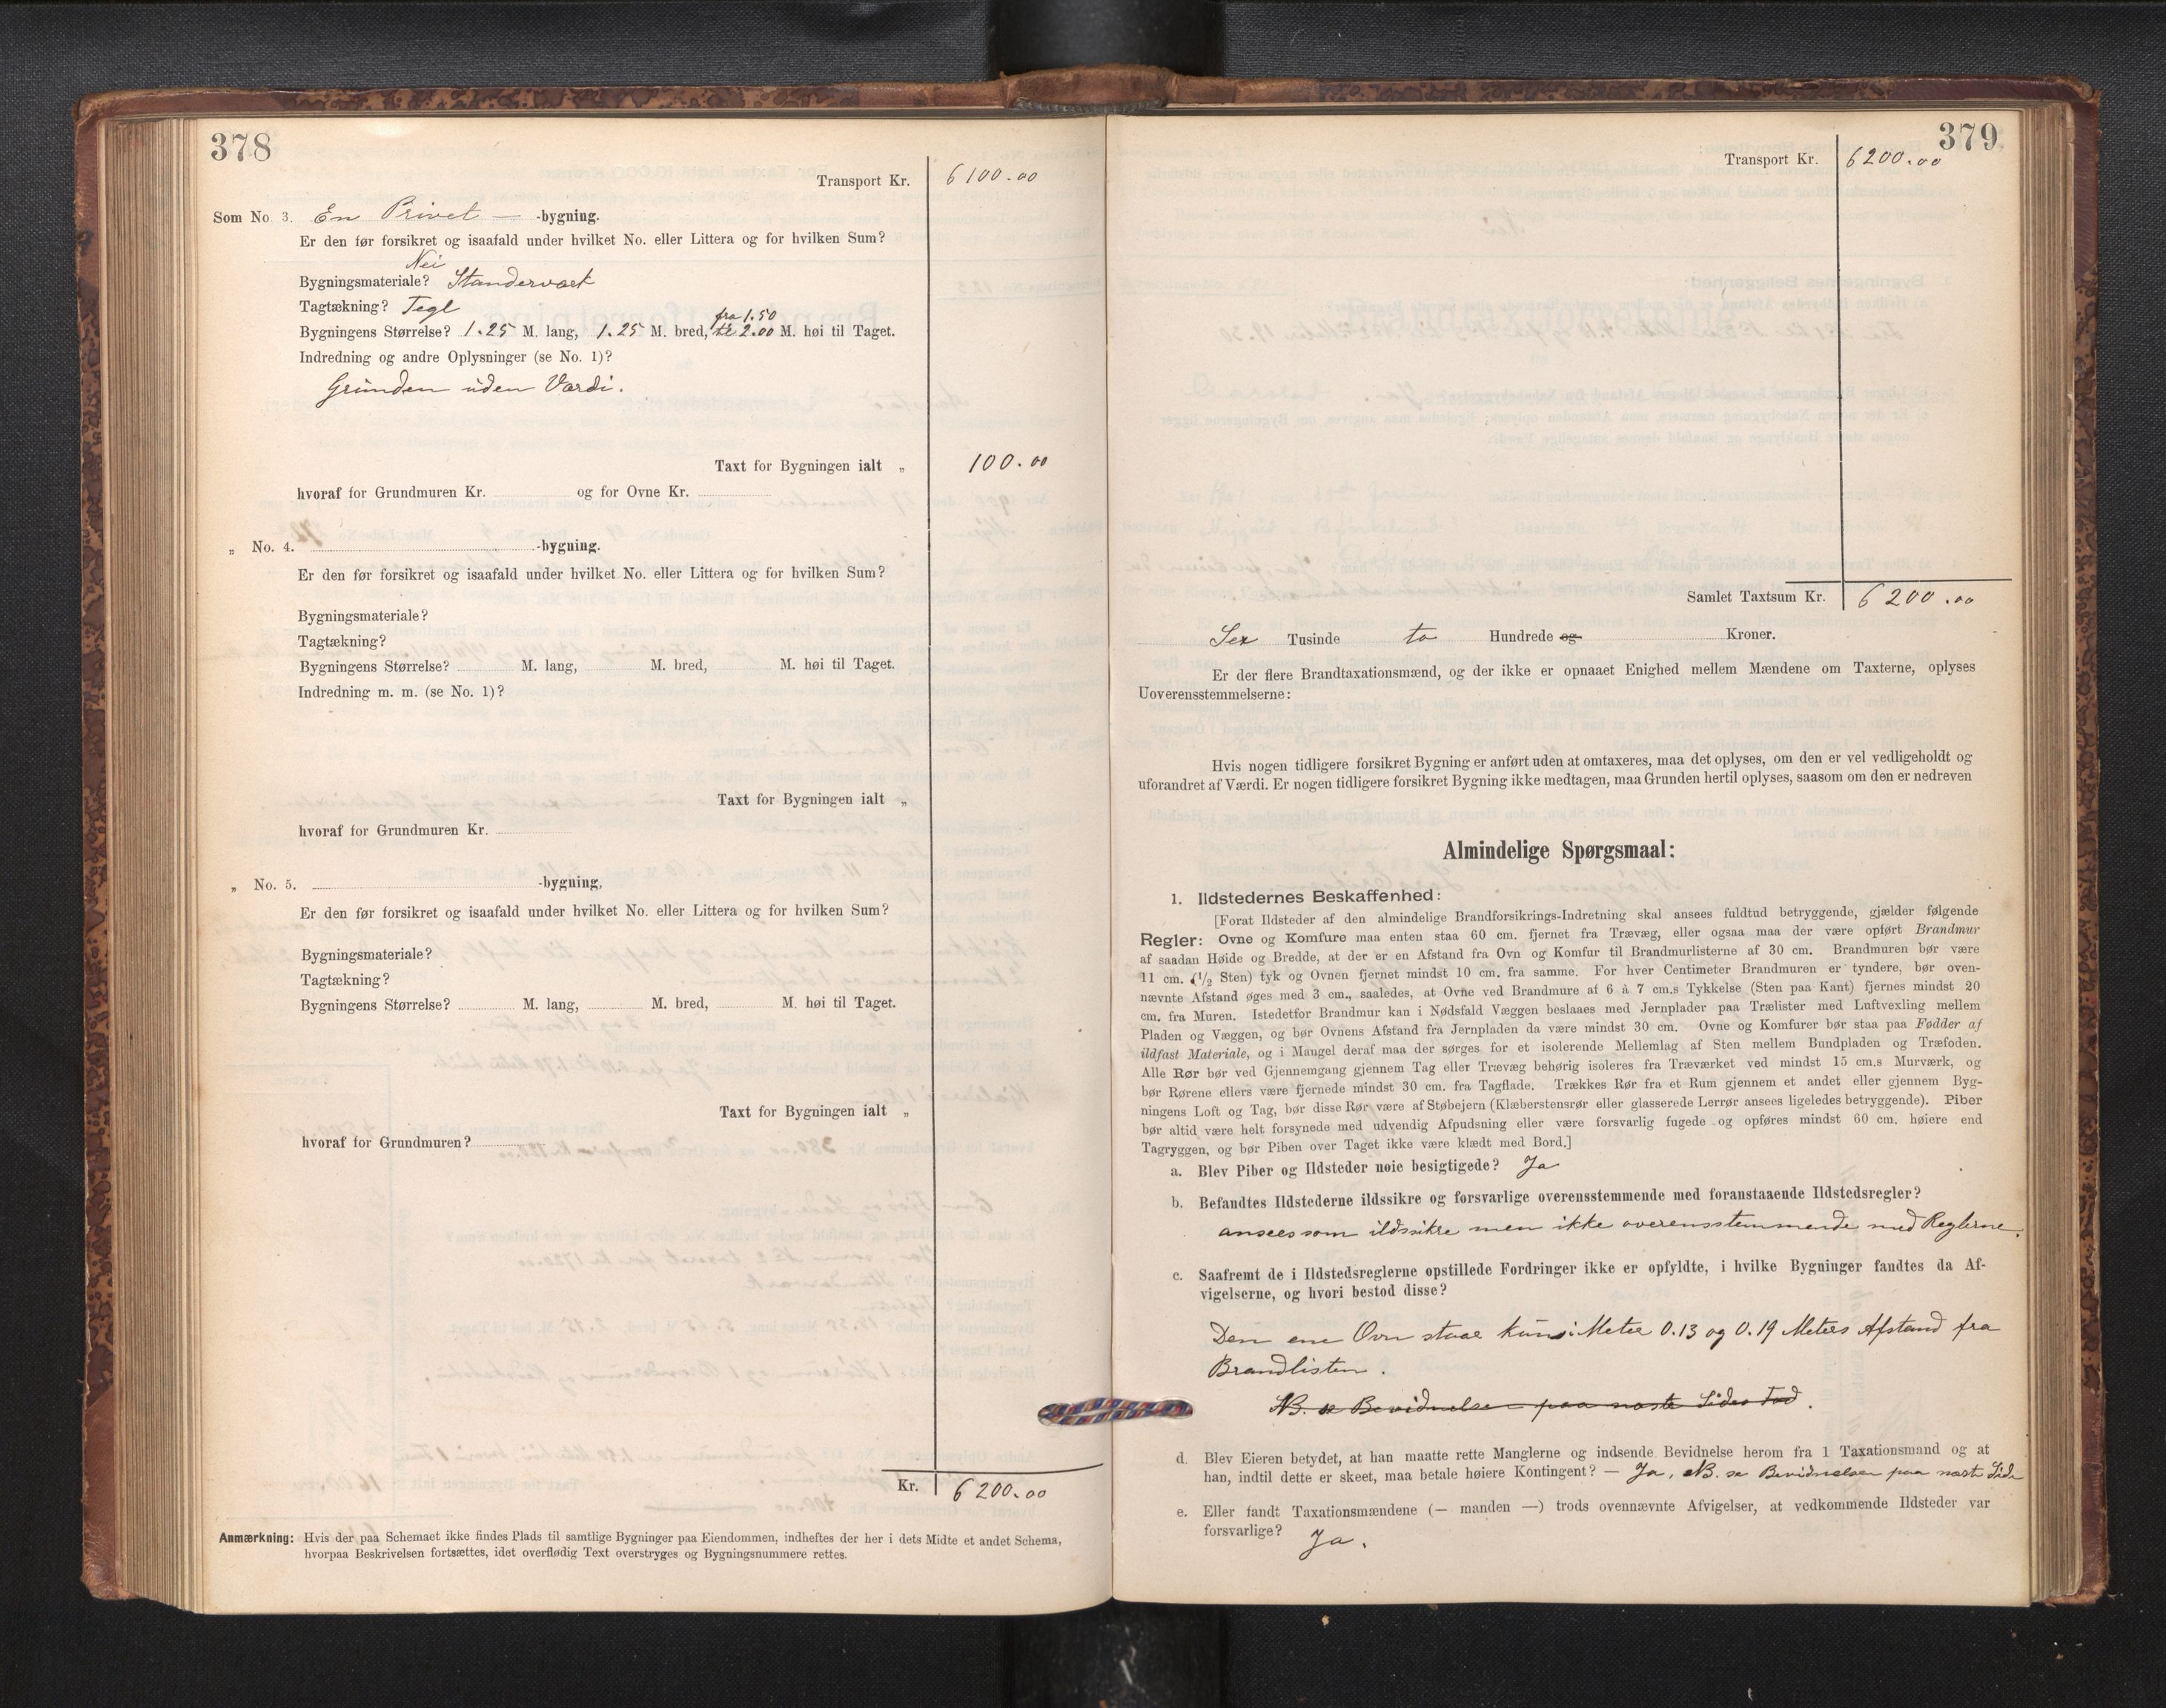 378
Transport Kr. 6100.00
Som No 3. En Privet — -bygning.
Er den før forsikret og isaafald under hvilket No. eller Littera og for hvilken Sum?
Nei
Bygningsmateriale? Standerværk
Tagtækning? Tegl
fra 1.50
Bygningens Størrelse? 1.25 M. lang, 1.25 M. bred, til 2.00 M. høi til Taget.
Indredning og andre Oplysninger (se No. 1)?
Grunden uden Værdi.
Taxt for Bygningen ialt „ 100.00
hvoraf for Grundmuren Kr. og for Ovne Kr.
„ No. 4. -bygning.
Er den før forsikret og isaafald under hvilket No. eller Littera og for hvilken Sum?
Bygningsmateriale?
Tagtækning?
Bygningens Størrelse? M. lang, M. bred, M. høi til Taget.
Indredning m. m. (se No. 1)?
Taxt for Bygningen ialt „
hvoraf for Grundmuren Kr.
„ No. 5. -bygning,
Er den før forsikret og isaafald under hvilket No. eller Littera og for hvilken Sum?
Bygningsmateriale?
Tagtækning?
Bygningens Størrelse? M. lang, M. bred, M. høi til Taget.
Taxt for Bygningen ialt „
hvoraf for Grundmuren?
Kr. 6200.00
Anmærkning: Hvis der paa Schemaet ikke findes Plads til samtlige Bygninger paa Eiendommen, indheftes der her i dets Midte et andet Schema,
hvorpaa Beskrivelsen fortsættes, idet overflødig Text overstryges og Bygningsnummere rettes.
379
Transport Kr. 6200.00
Samlet Taxtsum Kr. 6200.00
Sex Tusinde to Hundrede og Kroner.
Er der flere Brandtaxationsmænd, og der ikke er opnaaet Enighed mellem Mændene om Taxterne, oplyses
Uoverensstemmelserne:
Hvis nogen tidligere forsikret Bygning er anført uden at omtaxeres, maa det oplyses, om den er vel vedligeholdt og
uforandret af Værdi. Er nogen tidligere forsikret Bygning ikke medtagen, maa Grunden hertil oplyses, saasom om den er nedreven
Almindelige Spørgsmaal:
1. Ildstedernes Beskaffenhed:
[Forat Ildsteder af den almindelige Brandforsikrings-Indretning skal ansees fuldtud betryggende, gjælder følgende
Regler: Ovne og Komfure maa enten staa 60 cm. fjernet fra Trævæg, eller ogsaa maa der være opført Brandmur
af saadan Høide og Bredde, at der er en Afstand fra Ovn og Komfur til Brandmurlisterne af 30 cm. Brandmuren bør være
11 cm. (1/2 Sten) tyk og Ovnen fjernet mindst 10 cm. fra samme. For hver Centimeter Brandmuren er tyndere, bør oven-
nævnte Afstand øges med 3 cm., saaledes, at Ovne ved Brandmure af 6 à 7 cm.s Tykkelse (Sten paa Kant) fjernes mindst 20
cm. fra Muren. Istedetfor Brandmur kan i Nødsfald Væggen beslaaes med Jernplader paa Trælister med Luftvexling mellem
Pladen og Væggen, og bør Ovnens Afstand fra Jernpladen da være mindst 30 cm. Ovne og Komfurer bør staa paa Fødder af
ildfast Materiale, og i Mangel deraf maa der sørges for et isolerende Mellemlag af Sten mellem Bundpladen og Træfoden.
Alle Rør bør ved Gjennemgang gjennem Tag eller Trævæg behørig isoleres fra Træværket ved mindst 15 cm.s Murværk, og
bør Rørene ellers være fjernede mindst 30 cm. fra Tagflade. Trækkes Rør fra et Rum gjennem et andet eller gjennem Byg-
ningens Loft og Tag, bør disse Rør være af Støbejern (Klæberstensrør eller glasserede Lerrør ansees ligeledes betryggende). Piber
bør altid være helt forsynede med udvendig Afpudsning eller være forsvarlig fugede og opføres mindst 60 cm. høiere end
Tagryggen, og bør Piben over Taget ikke være klædt med Bord.]
a. Blev Piber og Ildsteder nøie besigtigede? Ja
b. Befandtes Ildstederne ildssikre og forsvarlige overensstemmende med foranstaaende Ildstedsregler?
ansees som ildssikre men ikke overensstemmende med Reglerne.
c. Saafremt de i Ildstedsreglerne opstillede Fordringer ikke er opfyldte, i hvilke Bygninger fandtes da Af-
vigelserne, og hvori bestod disse?
Den ene Ovn staar kun i Meter 0.13 og 0.19 Meters Afstand fra
Brandlisten.
NB. se Bevidnelsen paa næste Sides Fod.
d. Blev Eieren betydet, at han maatte rette Manglerne og indsende Bevidnelse herom fra 1 Taxationsmand og at
han, indtil dette er skeet, maa betale høiere Kontingent? — Ja, NB. se Bevidnelsen paa næst Side
e. Eller fandt Taxationsmændene (— manden —) trods ovennævnte Afvigelser, at vedkommende Ildsteder var
forsvarlige? Ja.